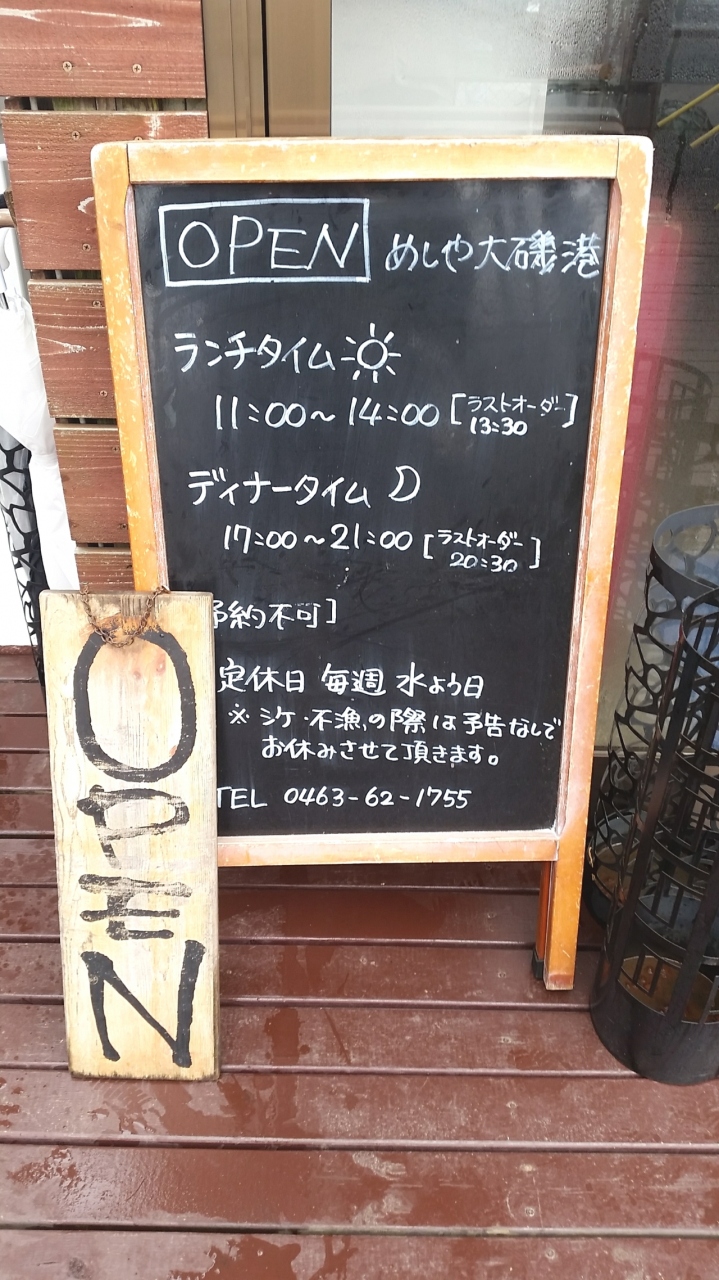 OPEN めしや大磯港
ランチタイム
11:00～14:00 [ラストオーダー 13:30]
ディナータイム
17:00～21:00 [ラストオーダー 20:30]
予約不可]
定休日 毎週 水よう日
※シケ・不漁の際は予告なしで
お休みさせて頂きます。
TEL 0463-62-1755
OPEN